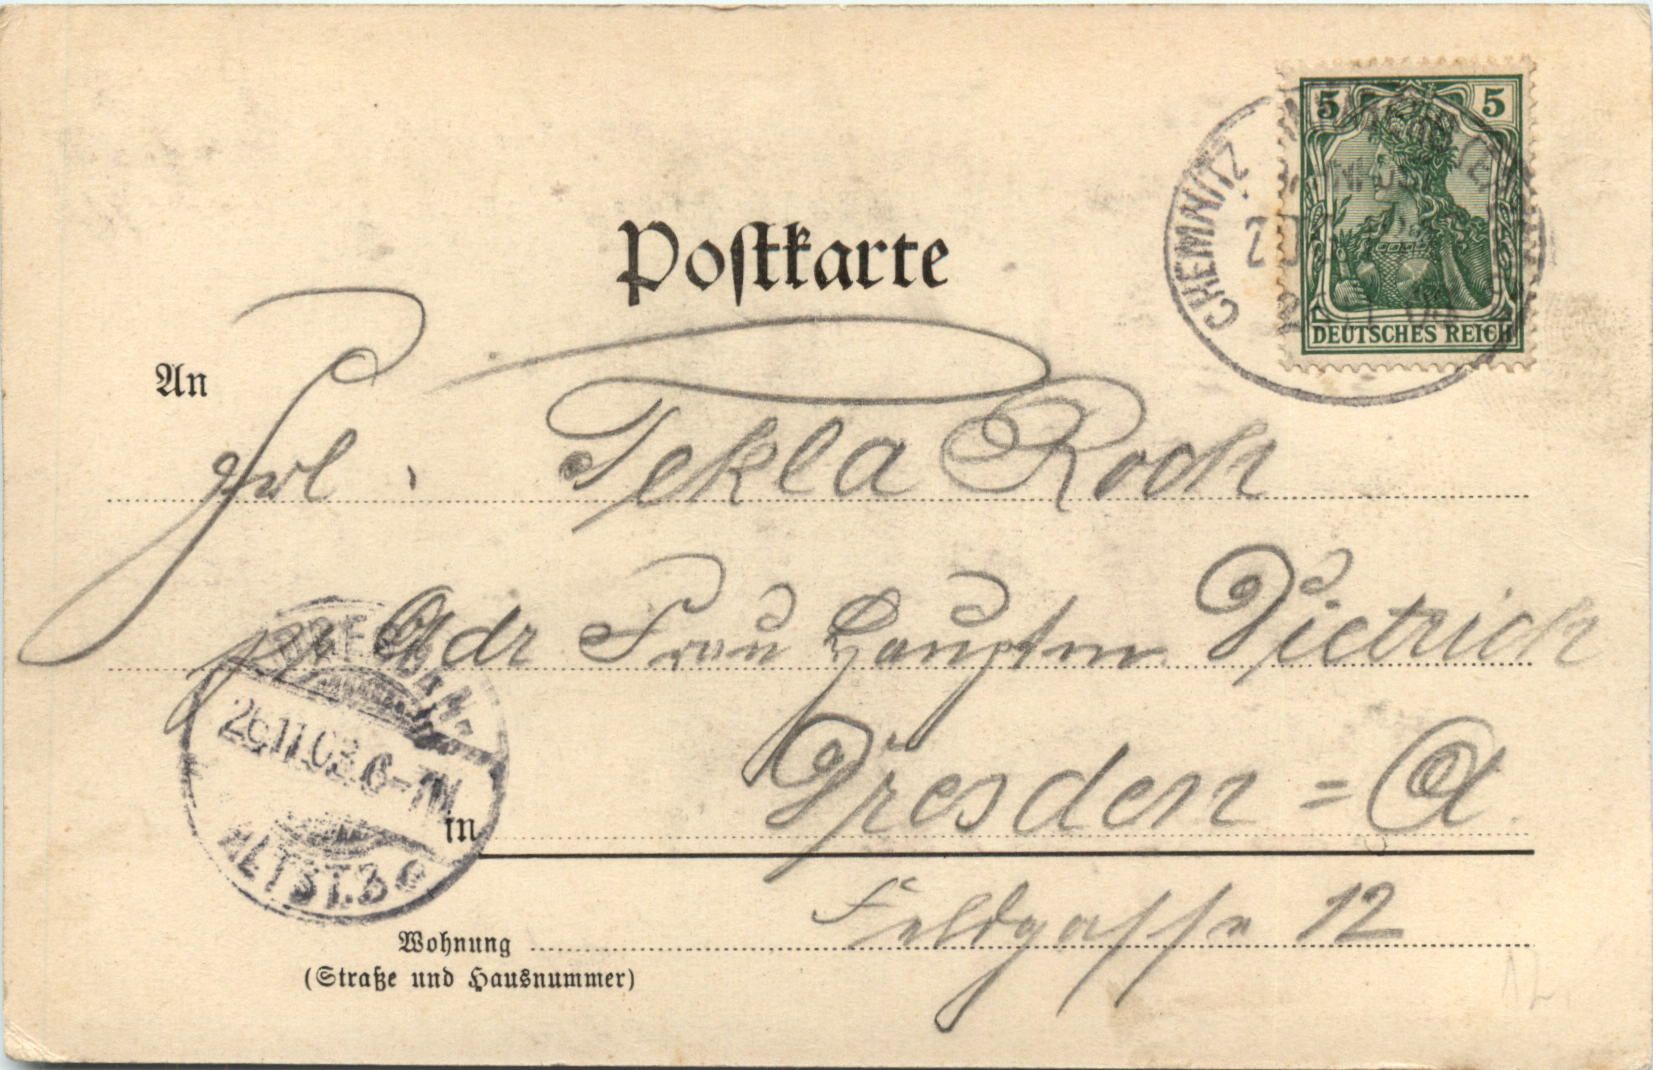 Postkarte
5 5
DEUTSCHES REICH
CHEMNITZ
An
Frl. Tekla Koch
pr Adr Frau Hauptm Dietrich
in Dresden = A
Feldgasse 12
Wohnung
(Straße und Hausnummer)
DRESDEN
11.03.6-7N
ALTST.3
12.